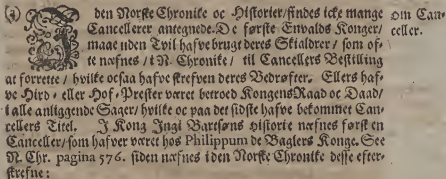 (2) I den Norske Chronike oc Historier/findes icke mange
Cancellerer antegnede. De første Envalds Konger/
maae uden Tvil hafve brugt deres Skialdrer/ som of-
te næfnes/ i N. Chronike/ til Cancellers Bestilling
at forrette/ hvilke ocsaa hafve skrefven deres Bedrøfter. Ellers haf-
ve Hird, eller Hof, Prester været betroed Kongens Raad oc Daad/
i alle anliggende Sager/ hvilke oc paa det sidste hafve bekommet Can-
cellers Titel. I Kong Ingi Bardsøns Historie næfnes først en
Canceller/som hafver været hos Philippum de Baglers Konge. See
N. Chr. pagina 576. siden næfnes i den Norske Chronike desse efter-
skrefne:
Om Can-
celler.